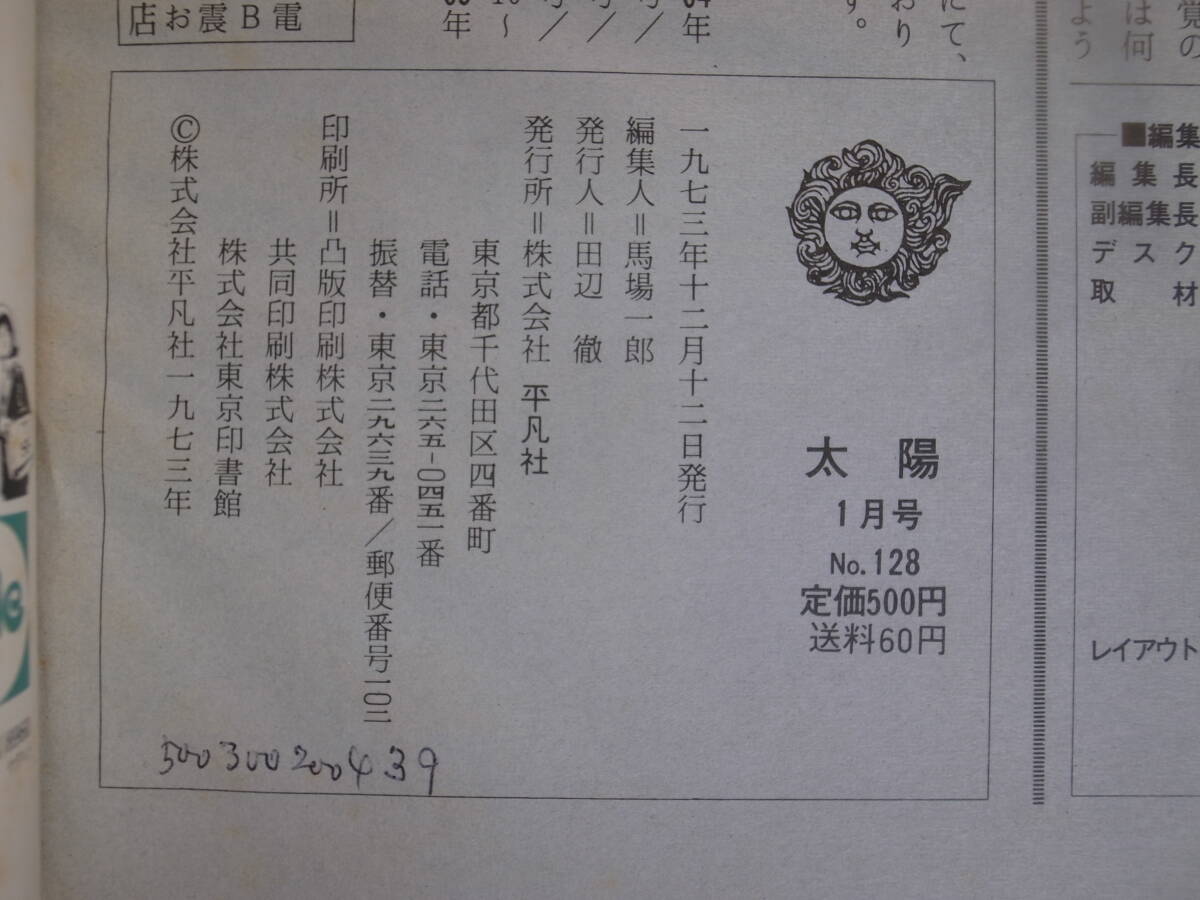 にて、
おり
す。
覚の
は何
よう
電
B
震
お
店
太陽
1月号
No.128
定価500円
送料60円
一九七三年十二月十二日発行
編集人＝馬場一郎
発行人＝田辺　徹
発行所＝株式会社 平凡社
東京都千代田区四番町
電話・東京二六五-〇四五一番
振替・東京二九六三九番／郵便番号一〇二
印刷所＝凸版印刷株式会社
共同印刷株式会社
株式会社東京印書館
©株式会社平凡社一九七三年
500300200439
■編集
編集長
副編集長
デスク
取材
レイアウト